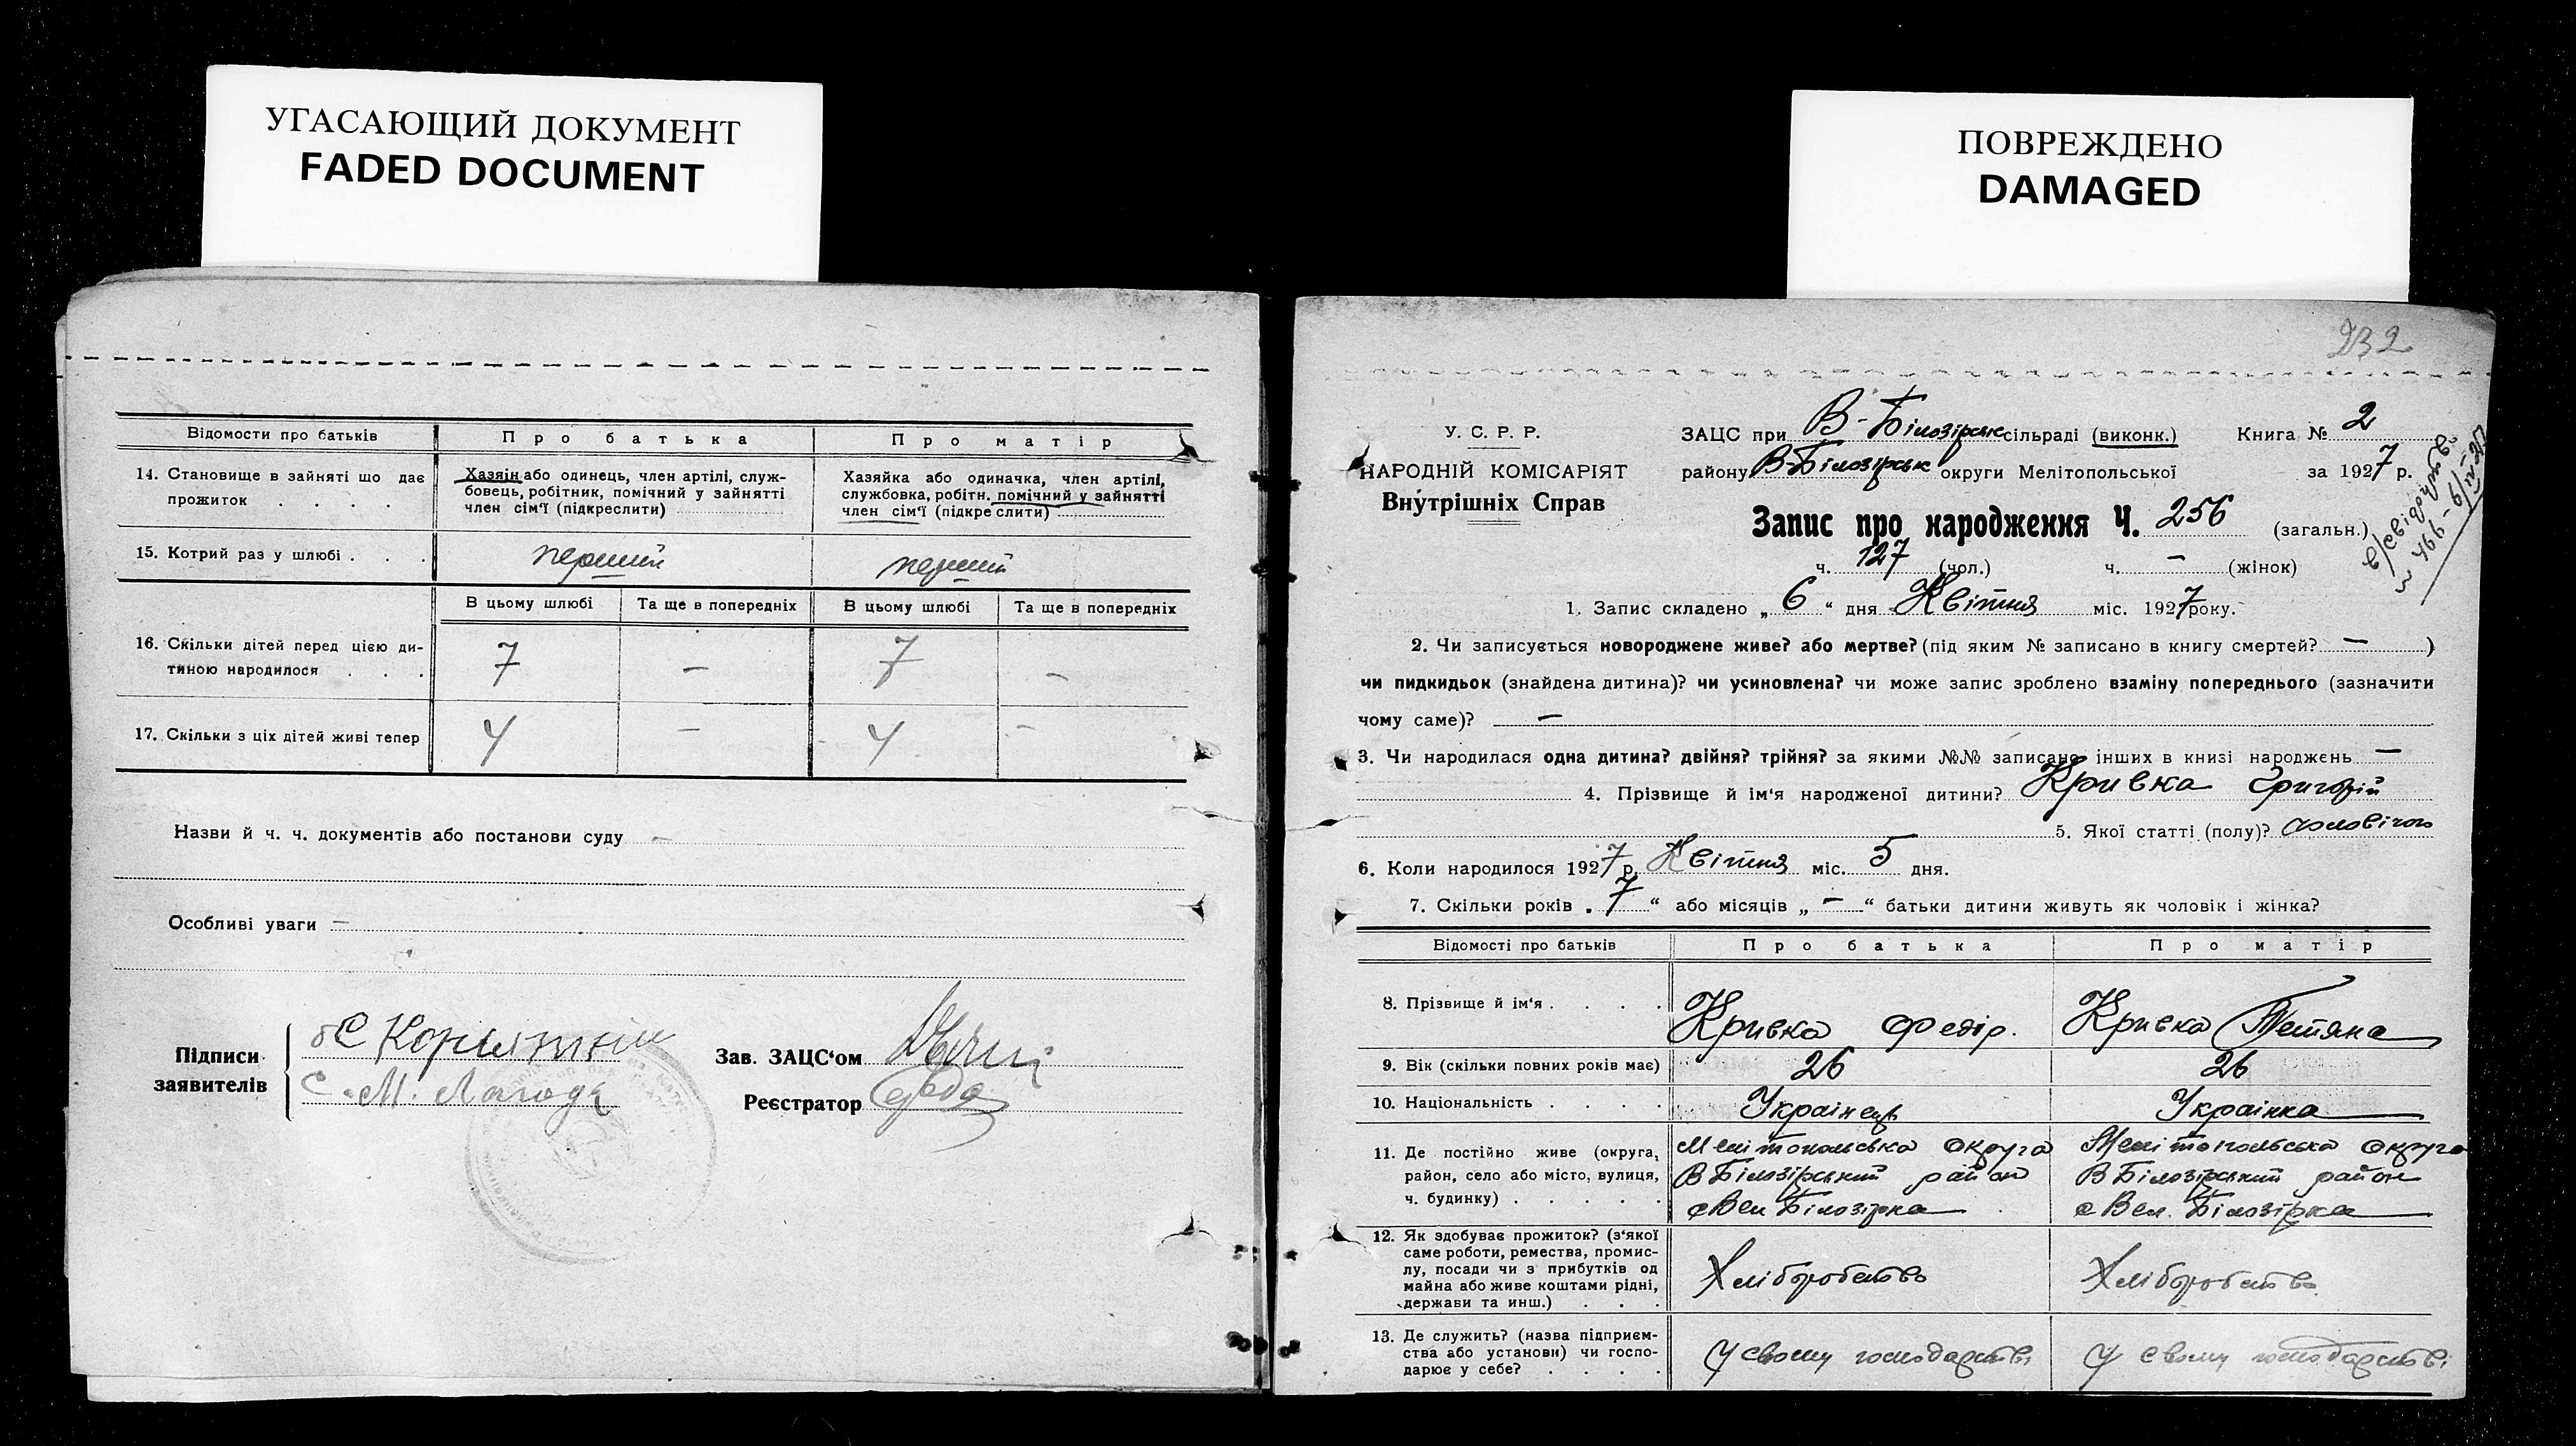 УГАСАЮЩИЙ ДОКУМЕНТ
FADED DOCUMENT
Відомости про батьків
Про батька
Про матір
14. Становище в зайняті шо дає
прожиток . . . .
Хазяїн або одинець, член артілі, служ-
бовець, робітник, помічний у зайнятті
член сім'ї (підкреслити)
Хазяйка або одиначка, член артілі,
службовка, робітн. помічний у зайнятті
член сім'ї (підкреслити)
15. Котрий раз у шлюбі . . .
перший
перший
В цьому шлюбі
Та ще в попередніх
В цьому шлюбі
Та ще в попередніх
16. Скільки дітей перед цією ди-
тиною народилося . . .
7 — 7 —
17. Скільки з ціх дітей живі тепер
4 — 4 —
Назви й ч. ч. документів або постанови суду —
Особливі уваги —
Підписи
заявителів
С. М. Лагода
Зав. ЗАЦС'ом
Реєстратор
ПОВРЕЖДЕНО
DAMAGED
232
У. С. Р. Р.
НАРОДНІЙ КОМІСАРІЯТ
Внутрішніх Справ
ЗАЦС при В-Білозірськ сільраді (виконк.) Книга № 2
району В-Білозірськ округи Мелітопольської за 1927 р.
Запис про народження Ч. 256 (загальн.)
ч. 127 (чол.) ч. — (жінок)
1. Запис складено „ 6 “ дня Квітня міс. 1927 року.
2. Чи записується новороджене живе? або мертве? (під яким № записано в книгу смертей? — )
чи пидкидьок (знайдена дитина)? чи усиновлена? чи може запис зроблено взаміну попереднього (зазначити
чому саме)? —
3. Чи народилася одна дитина? двійня? трійня? за якими №№ записано інших в книзі народжень —
4. Прізвище й ім'я народженої дитини? Кривка Григорій
5. Якої статті (полу)? чоловічого
6. Коли народилося 1927 р. Квітня міс. 5 дня.
7. Скільки років „ 7 “ або місяців „ — “ батьки дитини живуть як чоловік і жінка?
Відомості про батьків
Про батька
Про матір
8. Прізвище й ім'я . . . .
Кривка Федір.
Кривка Тетяна
9. Вік (скільки повних років має)
26
26
10. Національність . . . .
Українець
Українка
11. Де постійно живе (округа,
район, село або місто, вулиця,
ч. будинку) . . . . .
Мелітопольська округа
В Білозірський район
с Вел Білозірка
Мелітопольська округа
В Білозірський район
с Вел. Білозірка
12. Як здобуває прожиток? (з'якої
саме роботи, ремества, промис-
лу, посади чи з прибутків од
майна або живе коштами рідні,
держави та инш.) . . .
Хліборобство
Хліборобство
13. Де служить? (назва підприєм-
ства або установи) чи госпо-
дарює у себе? . . . .
У свому господарстві
У свому господарстві